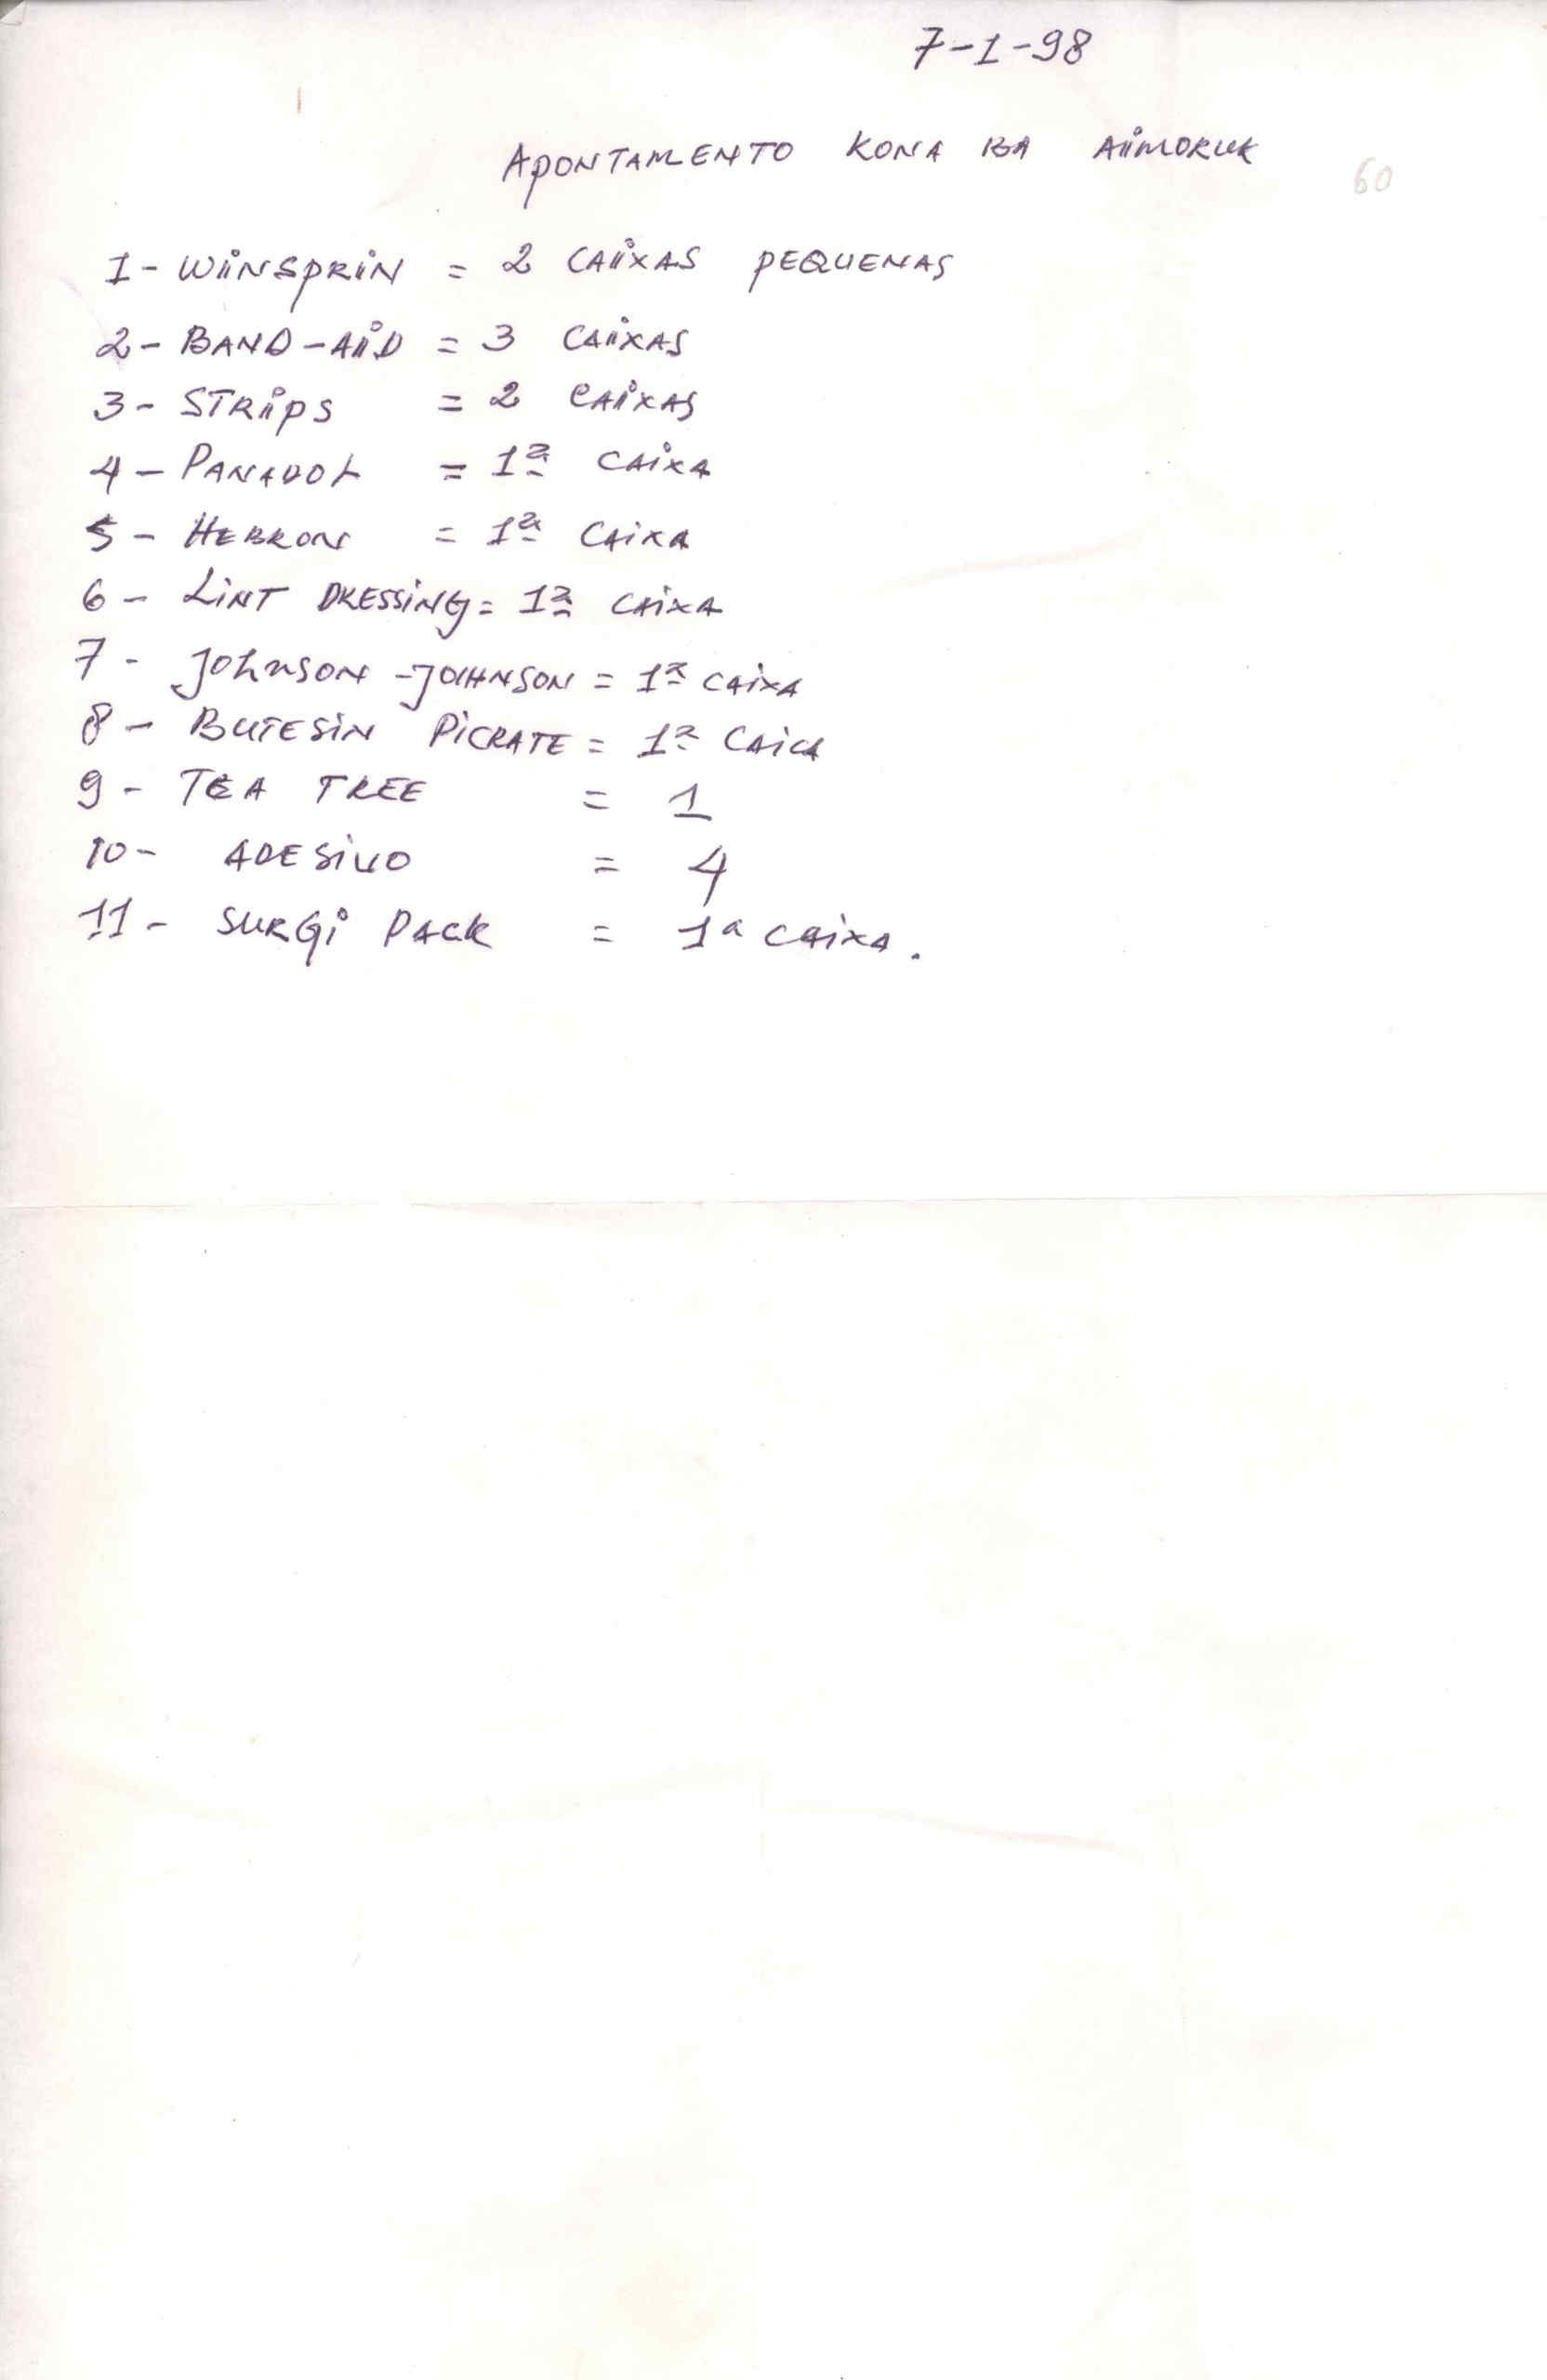 7-1-98
APONTAMENTO KONA BA AIMORUK
60
1- WINSPRIN = 2 CAIXAS PEQUENAS
2- BAND-AID = 3 CAIXAS
3- STRIPS = 2 CAIXAS
4- PANADOL = 1ª CAIXA
5- HEBRON = 1ª CAIXA
6- LINT DRESSING = 1ª CAIXA
7- JOHNSON-JOHNSON = 1ª CAIXA
8- BUTESIN PICRATE = 1ª CAICA
9- TEA TREE = 1
10- ADESIVO = 4
11- SURGI PACK = 1ª CAIXA.